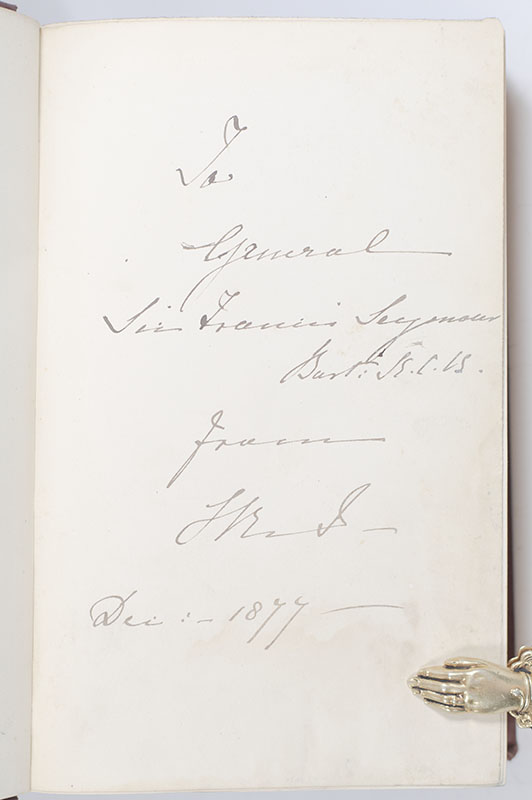 To
General
Sir Francis Seymour
Bart: K.C.B.
from
VR & I
Dec: - 1877